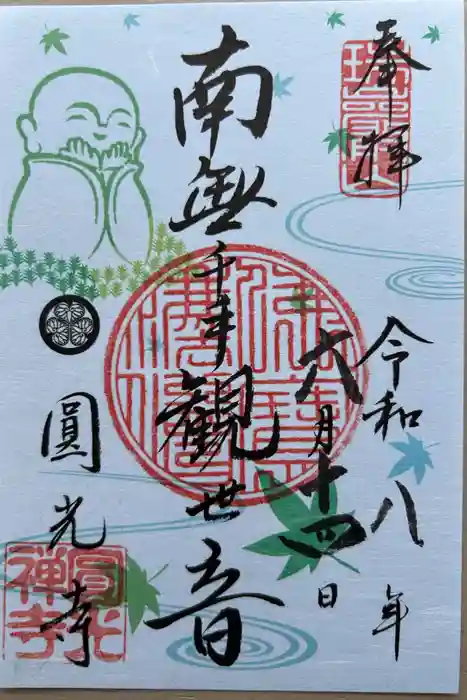 奉拝
令和八年
六月十四日
南無千手觀世音
圓光寺
圓光
禅寺